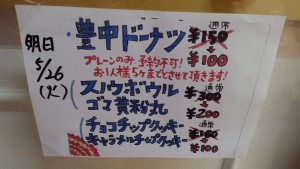 明日
5/26
(火)
豊中ドーナツ 通常 ¥150 → ¥100
プレーンのみ 予約不可!
お1人様5ケまでとさせて頂きます!
スノウボウル
ゴマ黄粉丸 通常 ¥300 → ¥200
チョコチップクッキー
キャラメルチップクッキー 通常 ¥150 → ¥100